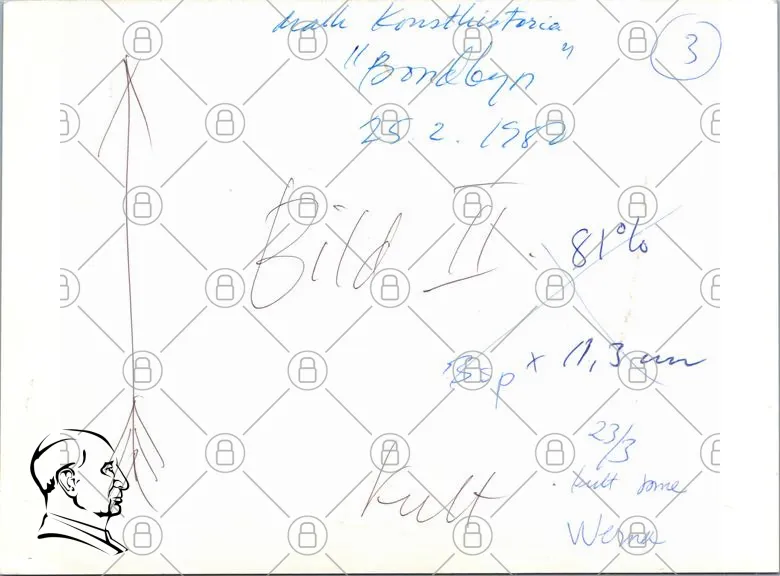 Konsthistoria
3
"Bondbyn"
25.2.1982
Bild II.
81%
x 11,3 cm
23/3
Kult
kult